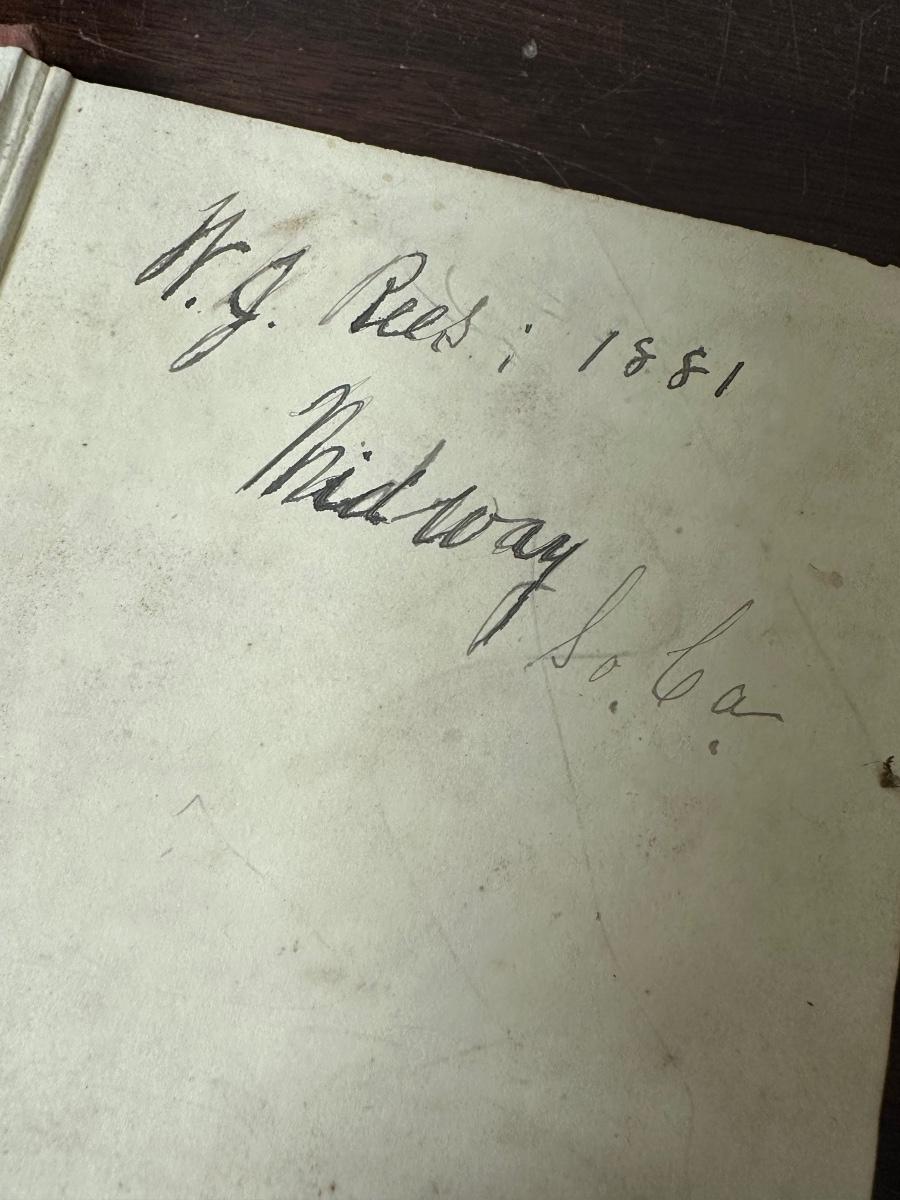 W. J. Rees; 1881
Midway
So. Ca.